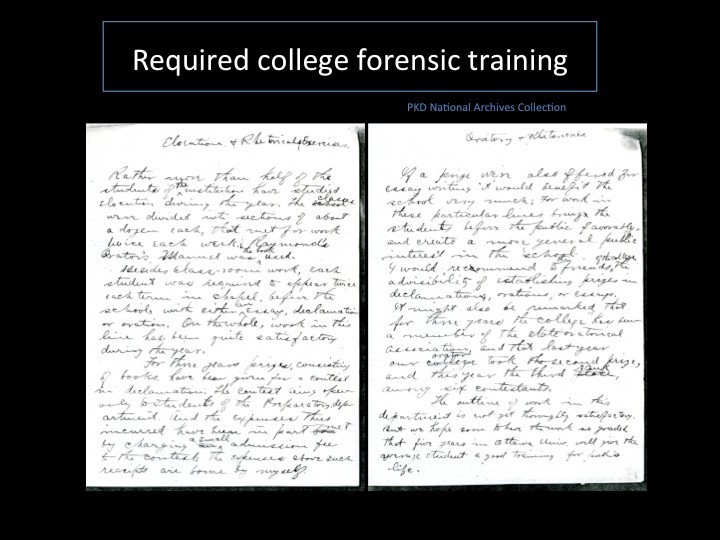 Required college forensic training
PKD National Archives Collection
Elocution & Rhetorical Exercises.
Rather more than half of the
students of the institution have studied
elocution during the year. The classes
were divided into sections of about
a dozen each, that met for work
twice each week. Raymond's
Orator's Manual was the book used.
Besides class-room work, each
student was required to appear twice
each term in chapel, before the
school, with either an essay, declamation
or oration. On the whole, work in this
line has been quite satisfactory
during the year.
For three years prizes, consisting
of books, have been given for a contest
in declamation. The contest being open
only to students of the Preparatory depart
artment. And the expenses thus
incurred have been in part met
by charging a small admission fee
to the contest; the expenses above such
receipts are borne by myself.
Oratory & Rhetoricals
If a prize were also offered for
essay writing it would benefit the
school very much. For work in
these particular lines brings the
students before the public favorably,
and create a more general public
interest in the school.
I would recommend to friends of the college, the
advisibility of establishing prizes in
declamations, orations, or essays.
It might also be remarked that
for three years the college has been
a member of the state oratorical
association, and that last year
our orator took the second prize,
and this year the third rank
among six contestants.
The outline of work in this
department is not yet thoroughly satisfactory.
But we hope soon to have the work so graded
that five years in Ottawa Univ. will give the
average student a good training for public
life.